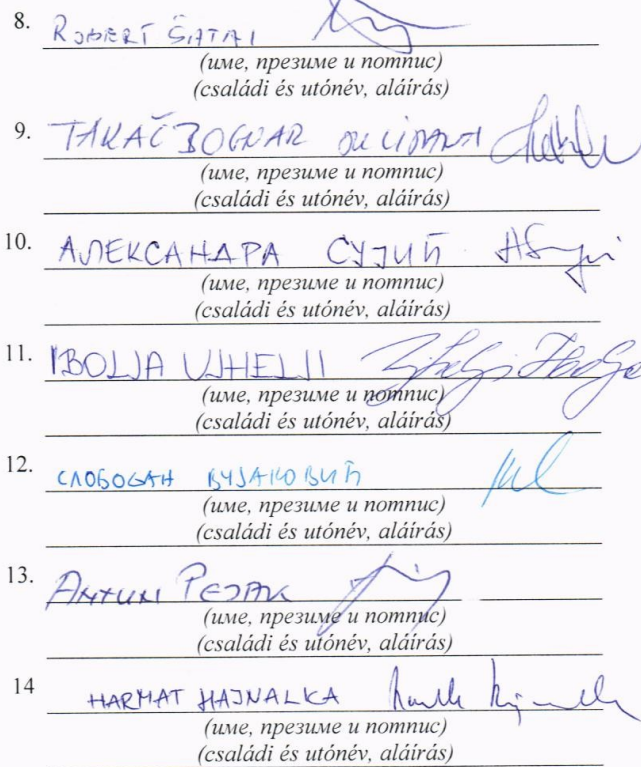 8. ROBERT ŠATAI
(име, презиме и потпис)
(családi és utónév, aláírás)
9. TAKAČ BOGNAR
(име, презиме и потпис)
(családi és utónév, aláírás)
10. АЛЕКСАНДРА СУЈИЋ
(име, презиме и потпис)
(családi és utónév, aláírás)
11. IBOLJA UJHELJI Ujhelji Ibolja
(име, презиме и потпис)
(családi és utónév, aláírás)
12. СЛОБОДАН ВУЈАКОВИЋ
(име, презиме и потпис)
(családi és utónév, aláírás)
13. ANTUN PEJAK
(име, презиме и потпис)
(családi és utónév, aláírás)
14 HARMAT HAJNALKA
(име, презиме и потпис)
(családi és utónév, aláírás)